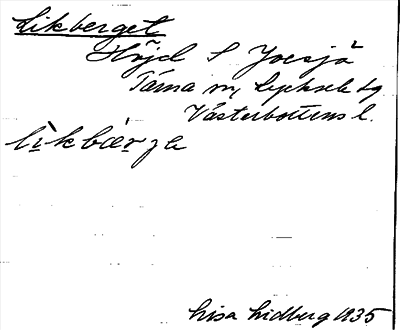 Likberget
Höjd S Joesjö
Tärna sn, Lycksele lg
Västerbottens l.
likbærje
Lisa Lidberg 1935